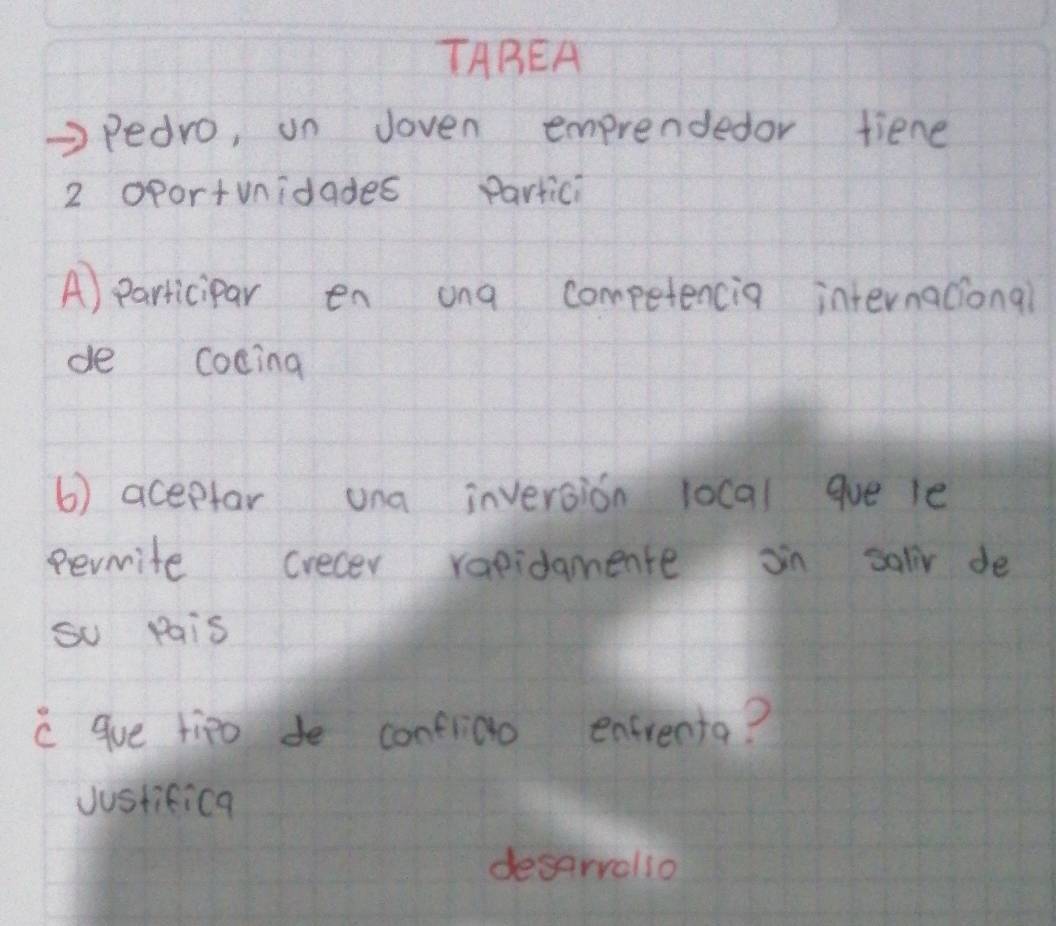 TAREA
→ Pedro, un Joven emprendedor tiene
2 oportunidades Partici
A) Participar en una competencia internacional
de cocina
b) aceptar una inversión local que le
permite crecer rapidamente sin salir de
su pais
¿ que tipo de conflicto enfrenta?
Justifica
desarrollo